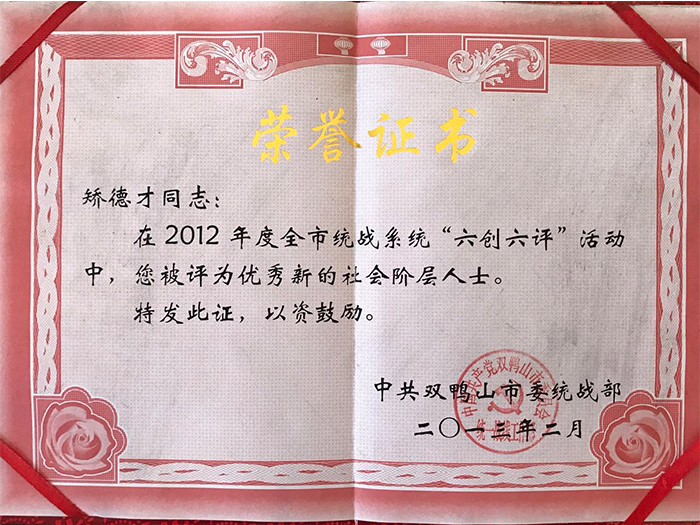 荣誉证书
矫德才同志：
在2012年度全市统战系统“六创六评”活动
中，您被评为优秀新的社会阶层人士。
特发此证，以资鼓励。
中共双鸭山市委统战部
二〇一三年二月
中国共产党双鸭山市委员会